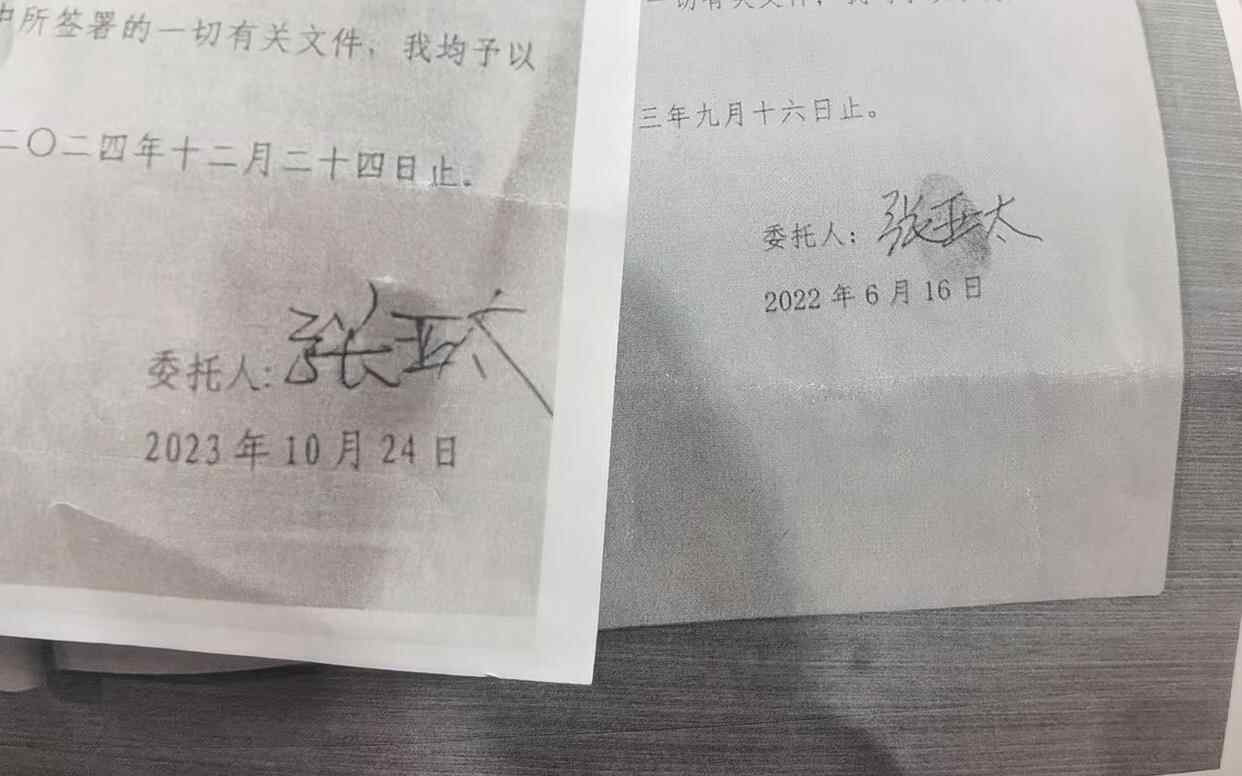 中所签署的一切有关文件，我均予以
二〇二四年十二月二十四日止。
委托人：张亚太
2023 年 10 月 24 日
一切有关文件，我
三年九月十六日止。
委托人：张亚太
2022 年 6 月 16 日